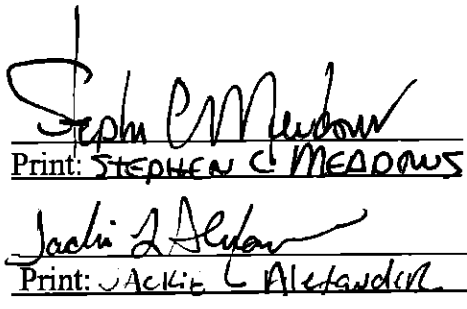 Stephen C Meadows
Print: STEPHEN C MEADOWS
Jackie L Alexander
Print: JACKIE L Alexander